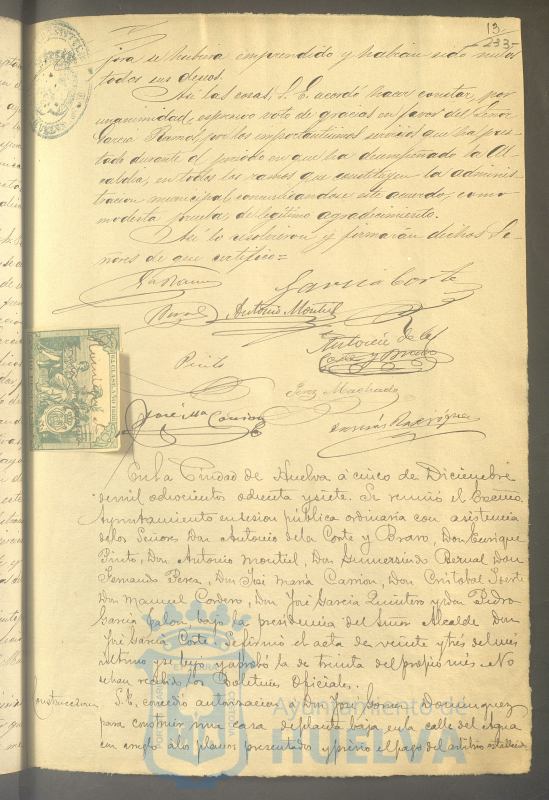 13
233
jora se hubiera emprendido y habrian sido
todos sus deseos.
Asi las cosas, S. E. acordó hacer constar, por
unanimidad, espresivo voto de gracias en favor del Señor
Garcia Ramos, por los importantisimos servicios que ha pres-
tado durante el periodo en que ha desempeñado la Al-
caldia, en todos los ramos que constituyen la adminis-
tracion municipal, comunicandose este acuerdo, como
modesta prueba, de legitimo agradecimiento.
Asi lo resolvieron y firmarán dichos Se-
ñores de que certifico=
Garcia Corte
Antonio Montiel
Antonio de la
Corte y Bravo
Pinto
Perez Machado
José Mª Carrion
En la Ciudad de Huelva á cinco de Diciembre
de mil ochocientos ochenta y siete. Se reunió el Excmo.
Ayuntamiento en sesion pública ordinaria con asistencia
de los Señores Don Antonio de la Corte y Bravo, Don Enrique
Pinto, Don Antonio Montiel, Don Gumersindo Bernal, Don
Fernando Perea, Don José María Carrion, Don Cristobal
Don Manuel Cordero, Don José Garcia Quintero y Don Pedro
Garcia Jalon, bajo la presidencia del Señor Alcalde Don
José Garcia Corte. Se firmó el acta de veinte y tres del mes
ultimo y se leyó y aprobó la de treinta del propio mes. No
se han recibido Boletines Oficiales.
Construcciones S. E. concedió autorizacion a Don José Gomez Dominguez
para construir una casa de planta baja en la calle del Agua
con arreglo a los planos presentados y previo el pago del arbitrio establecido
Ayuntamiento de
HUELVA